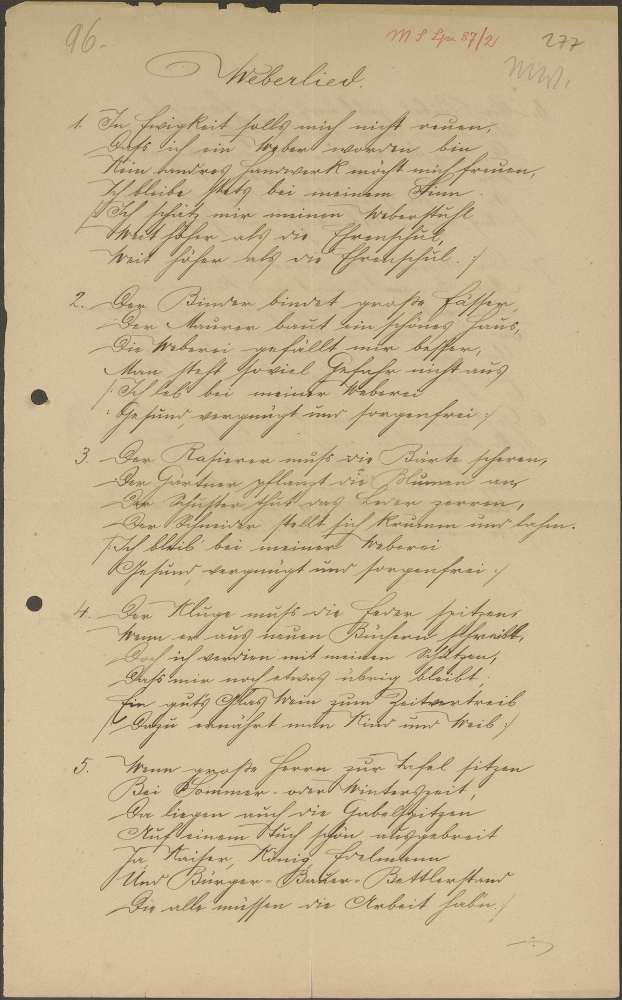 96.
MS Lpr 87/21
277
MW.
Weberlied.
1. In Ewigkeit solls mich nicht reuen,
Dass ich ein Weber worden bin,
Kein andres Handwerk möcht mich freuen,
Ich bleibe stets bei meinem Sinn.
/: Ich schätz mir meinen Weberstuhl
Weit höher als die Ehrenschul,
Weit höher als die Ehrenschul. :/
2. Der Binder bindet große Fässer,
Der Maurer baut ein schönes Haus,
Die Weberei gefällt mir besser,
Man steht soviel Gefahr nicht aus
/: Ich leb bei meiner Weberei
Gesund, vergnügt und sorgenfrei :/
3. Der Rasierer muss die Bärte scheren,
Der Gärtner pflanzt die Blumen an,
Der Schuster thut das Leder zerren,
Der Schneider stellt sich krumm und lahm.
/: Ich bleib bei meiner Weberei
Gesund, vergnügt und sorgenfrei :/
4. Der Kluge muss die Feder spitzen
Wenn er aus neuen Büchern schreibt,
Doch ich verdien mit meinen Schützen,
Dass mir noch etwas übrig bleibt.
/: Ein guts Glas Wein zum Zeitvertreib
Dazu ernährt man Kind und Weib :/
5. Wenn große Herrn zur Tafel sitzen
Bei Sommer- oder Winterszeit,
Da liegen auch die Gabelspitzen
Auf einem Tuch schön ausgebreit
Ja, Kaiser, König, Edelmann
Und Bürger- Bauer- Bettlerstand
Die alle müssen die Arbeit hab'n. :/